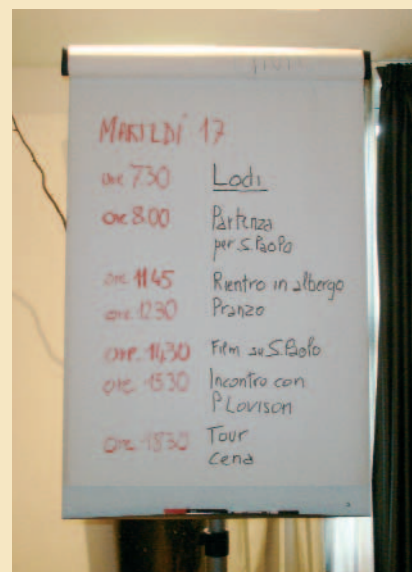 MARTEDÍ 17
ore 730 Lodi
ore 8.00 Partenza
per S. PaoPo
ore 1145 Rientro in albergo
ore 1230 Pranzo
ore 14,30 Film su S. Paolo
ore 1530 Incontro con
P. Lovison
ore 1830 Tour
cena